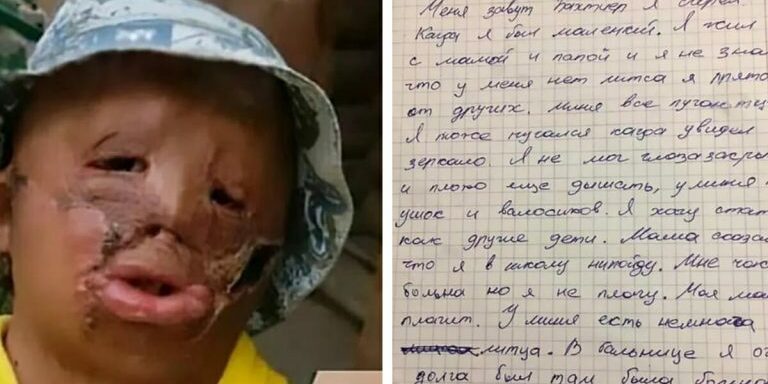 Меня завут Бахтиер я
Кагда я был маленкий. Я жил
с мамой и папой и я не зна
что у меня нет литса я прято
от других. миня все пугаютц
Я тоже пугался кагда увидел
зеркало. Я не мог глаза
и плохо еще дышать, у миня
ушок и валосиков. Я хочу стат
как другие дети. Мама
что я в школу нипойду. Мне
больна но я не плачу. Моя ма
плачит. У миня есть немнога
литца. В бальнице я о
долга был там была